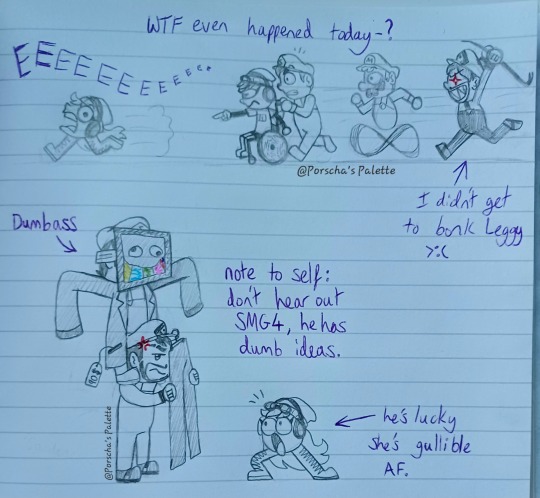 WTF even happened today-?
EEEEEEEEEEE...
@Porscha's Palette
I didn't get
to bonk Leggy
>:(
Dumbass
note to self:
don't hear out
SMG4, he has
dumb ideas.
@Porscha's Palette
he's lucky
she's gullible
AF.